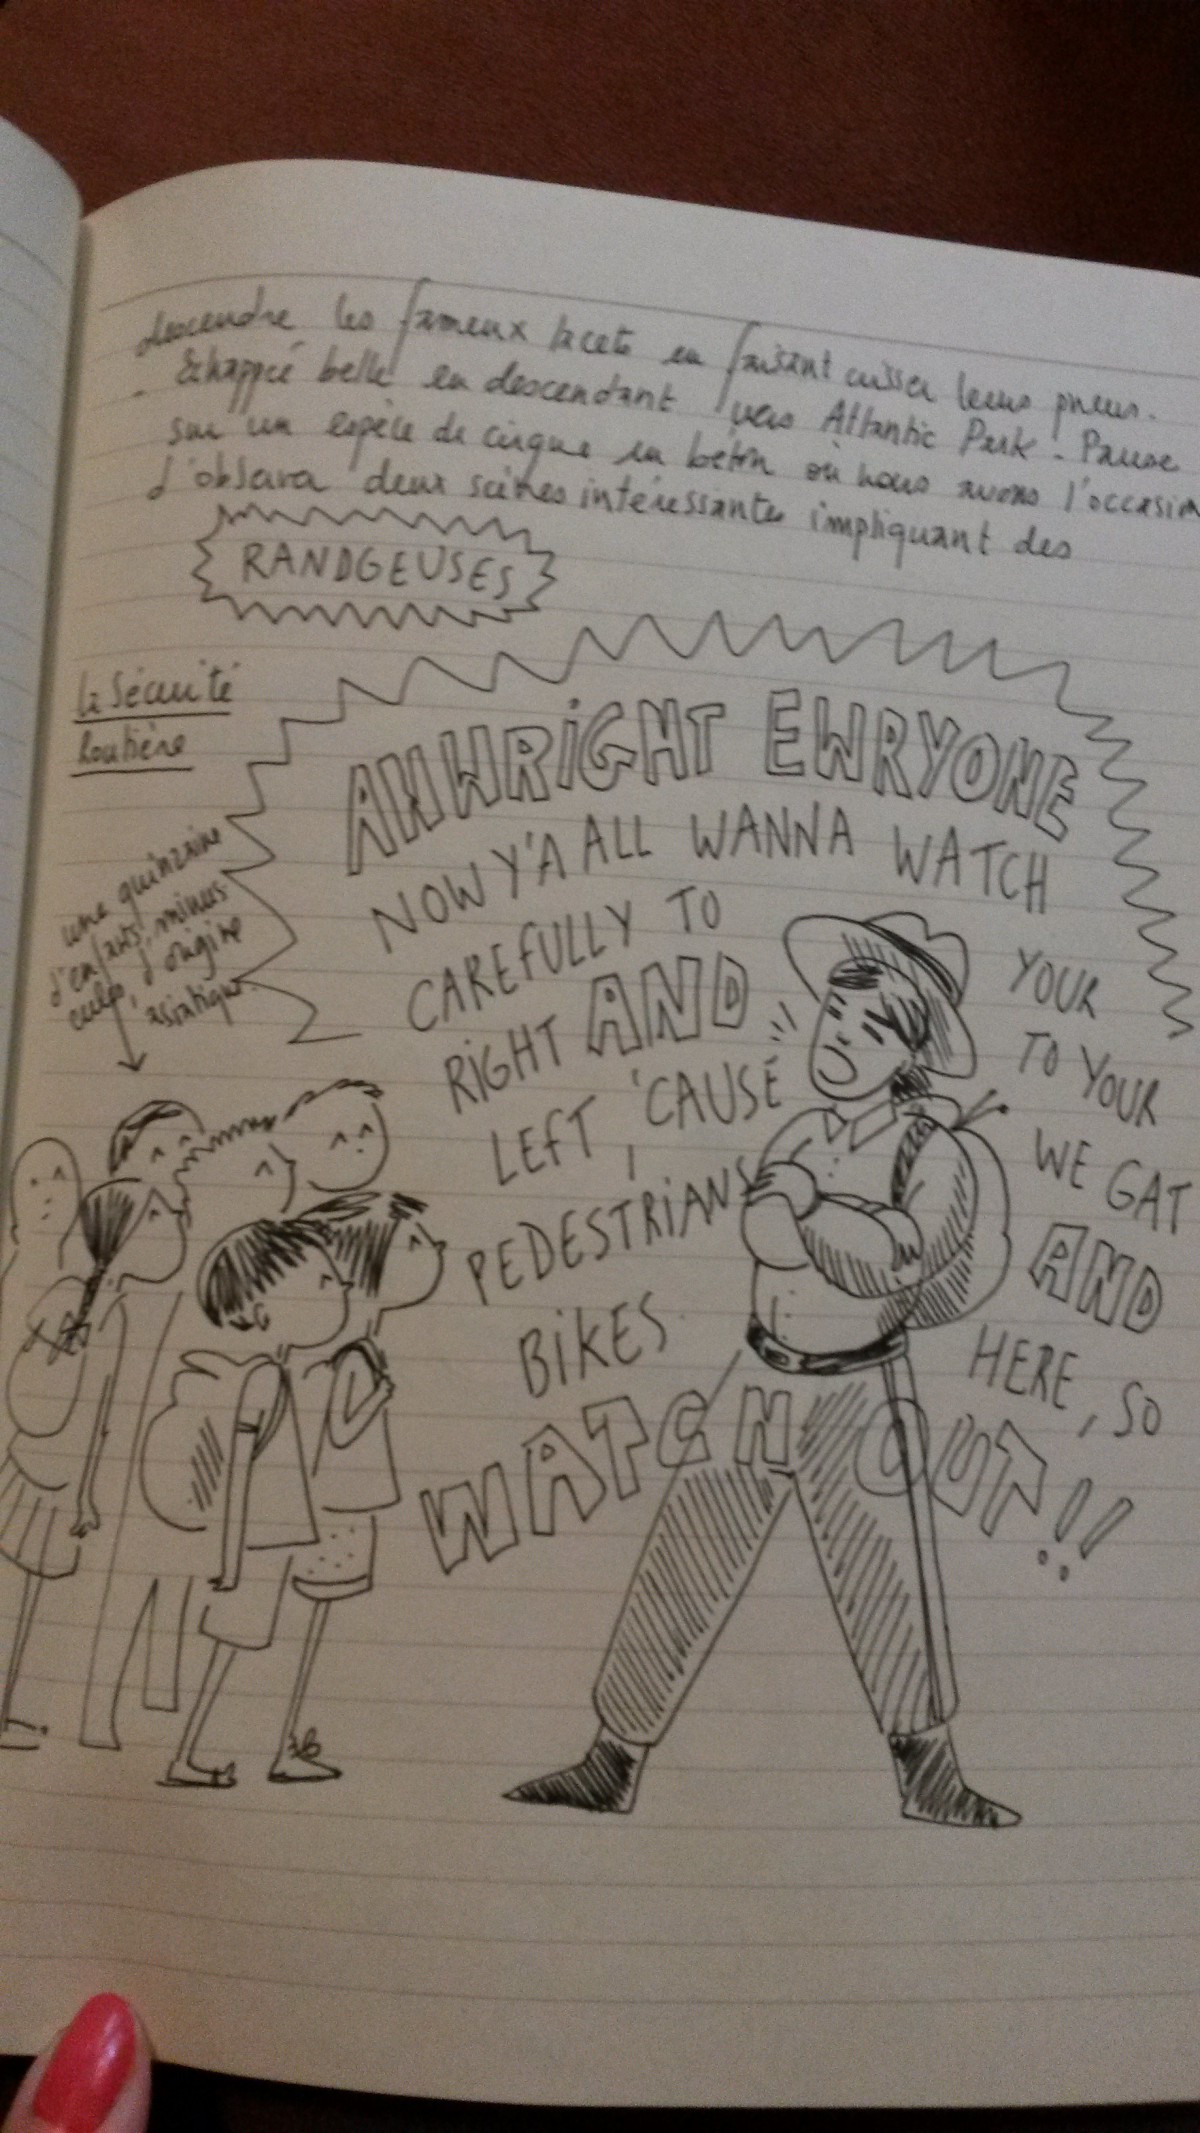 descendre les fameux lacets en faisant crisser leurs pneus.
Echappée belle en descendant vers Atlantic Park. Pause
sur un espèce de cirque en béton où nous avons l'occasion
d'observer deux scènes intéressantes impliquant des
RANDGEUSES
la Sécurité
Routière
une quinzaine
d'enfants minus-
cules, d'origine
asiatique.
AHWRIGHT EWRYONE
NOW Y'A ALL WANNA WATCH
CAREFULLY TO YOUR
RIGHT AND TO YOUR
LEFT, 'CAUSE WE GAT
PEDESTRIANS AND
BIKES HERE, SO
WATCH OUT!!